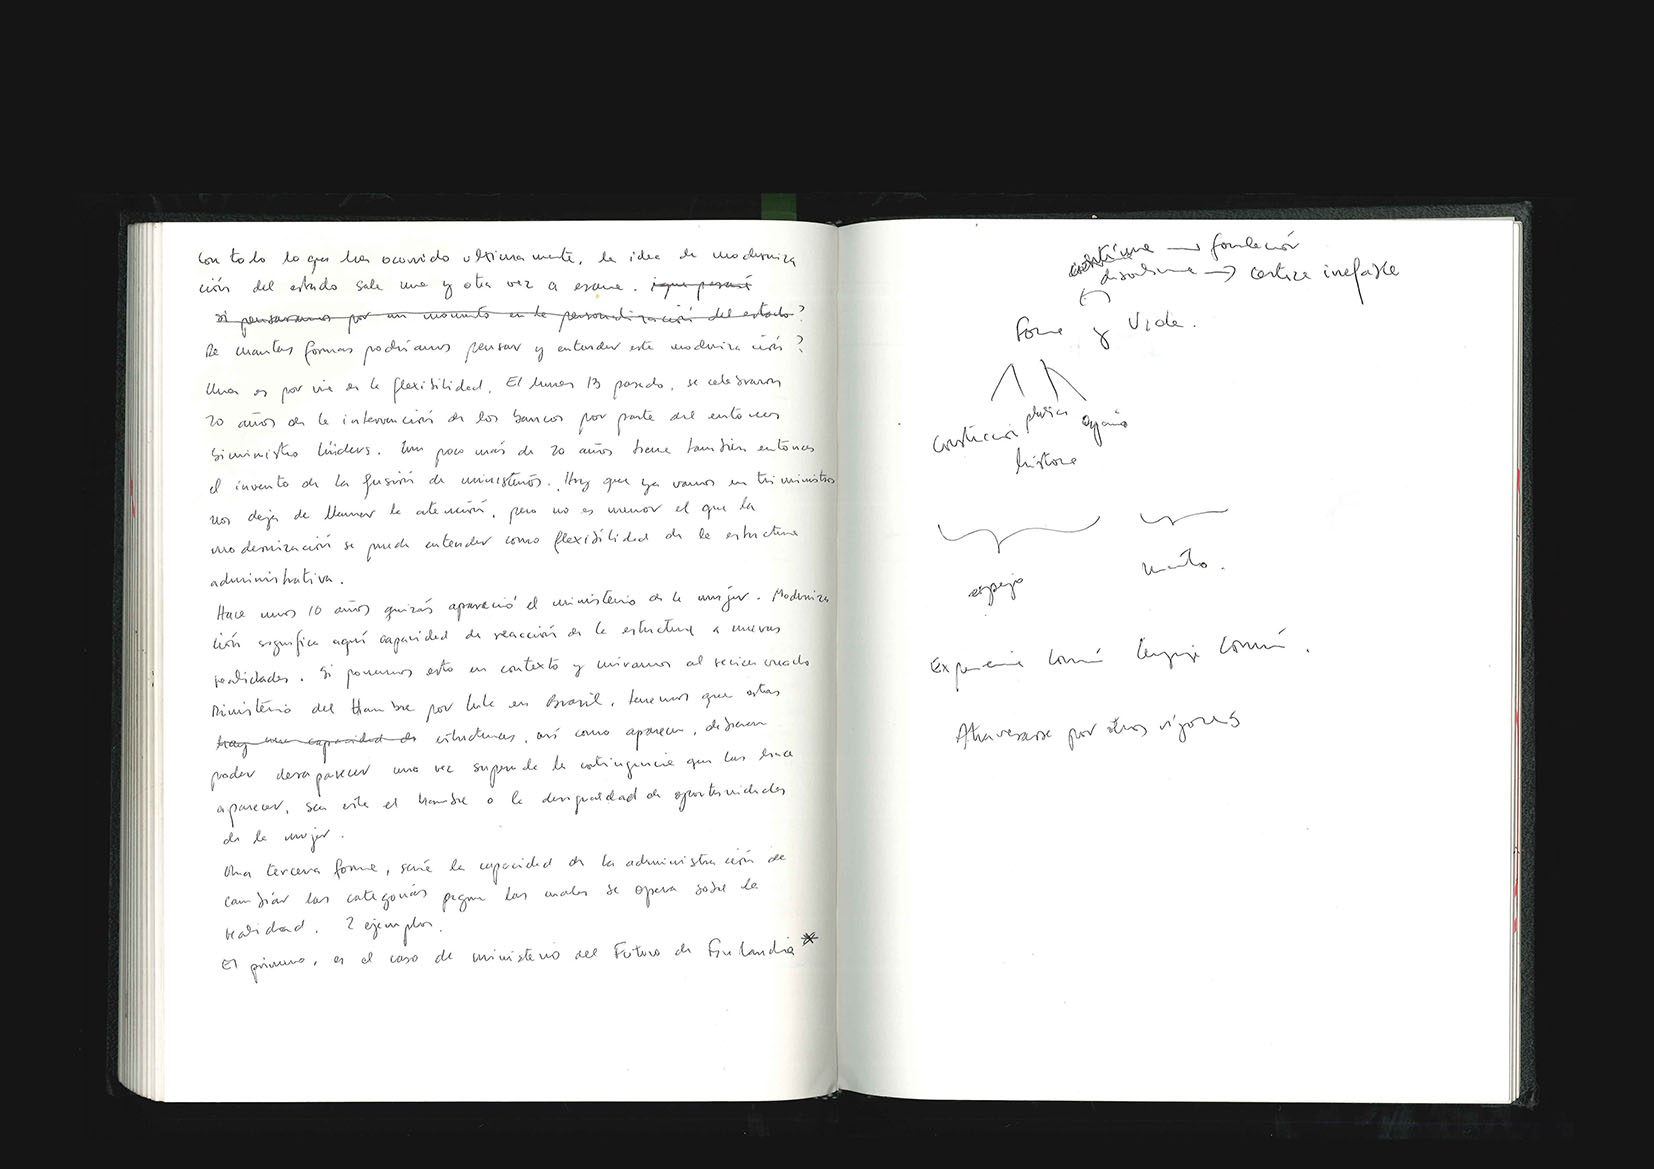 Con todo lo que ha ocurrido ultimamente, la idea de moderniza
ción del estado sale una y otra vez a escena. ¿que pasará
si pensaramos por un momento en la personalización del estado?
De cuantas formas podríamos pensar y entender esta modernización?
Una es por via de la flexibilidad. El lunes 13 pasado, se celebraron
20 años de la intervención de los bancos por parte del entonces
biministro Lüders. Un poco más de 20 años tiene también entonces
el invento de la fusión de ministerios. Hoy que ya vamos en triministros
nos deja de llamar la atención, pero no es menor el que la
modernización se pueda entender como flexibilidad de la estructura
administrativa.
Hace unos 10 años quizás apareció el ministerio de la mujer. Moderniza
ción significa aquí capacidad de reacción de la estructura a nuevas
realidades. Si ponemos esto en contexto y miramos al recien creado
Ministerio del Hambre por Lula en Brasil, tenemos que estas
hay una capacidad de estructuras, así como aparecen, debieran
poder desaparecer una vez superada la contingencia que las hace
aparecer, sea esta el hambre o la desigualdad de oportunidades
de la mujer.
Una tercera forma, sería la capacidad de la administración de
cambiar las categorías según las cuales se opera sobre la
realidad. 2 ejemplos.
El primero, es el caso de ministerio del Futuro de Finlandia *
→ fundación
disolverse → certeza inefable
Forma y Vida.
Construcción plástica orgánica
historia
espejo
Experiencia Común lenguaje Común.
Atravesarse por otros vigores